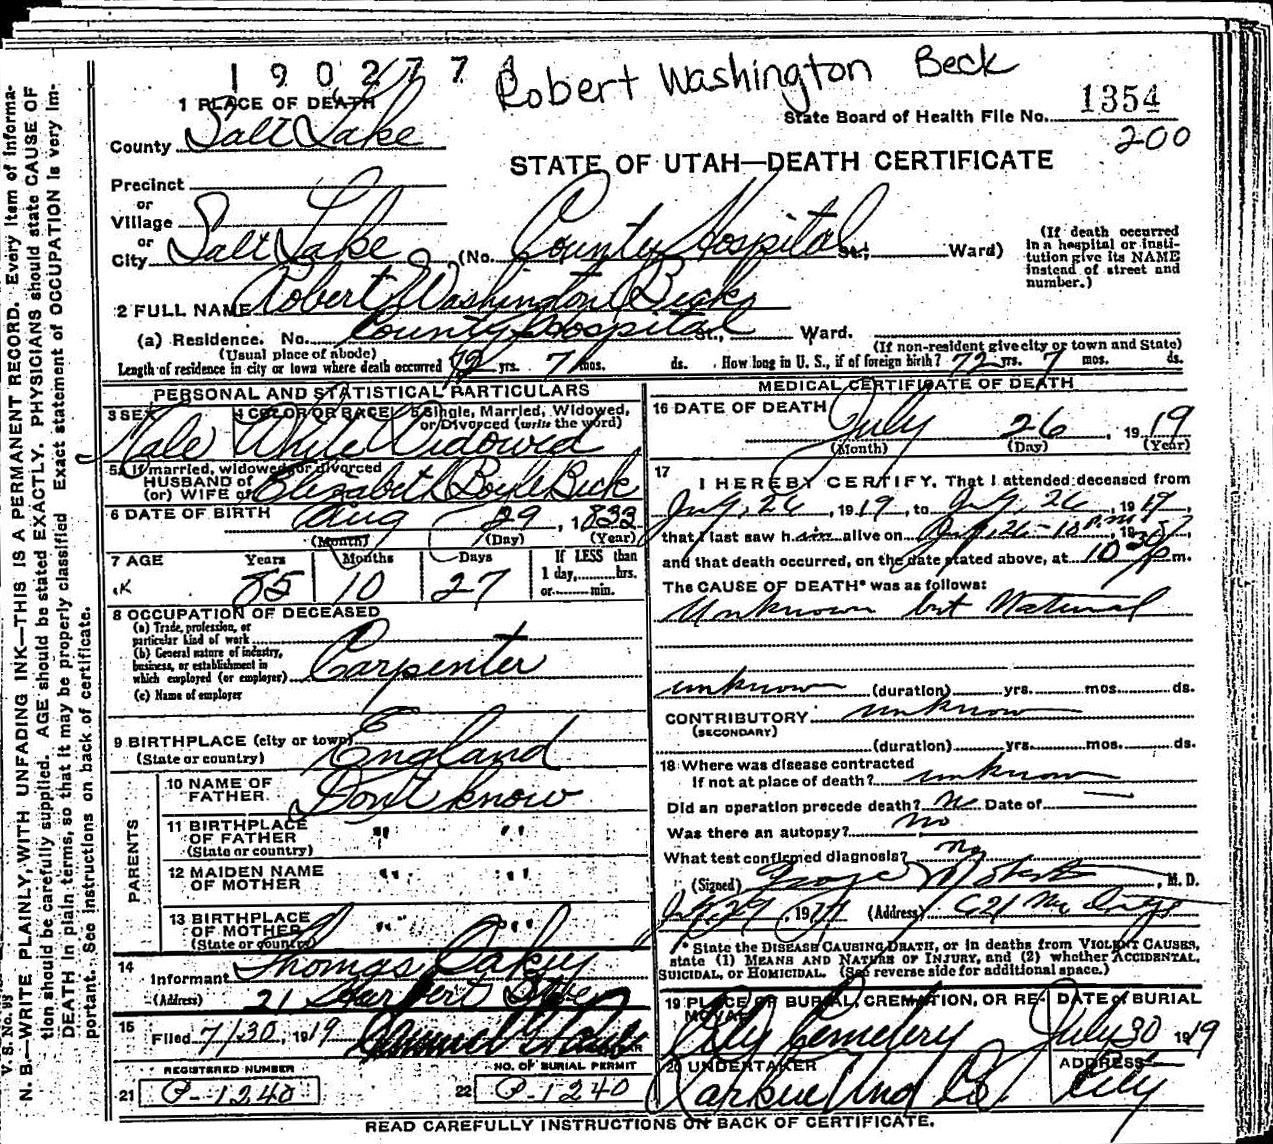 1902774
Robert Washington Beck
1 PLACE OF DEATH
State Board of Health File No. 1354
200
County Salt Lake
STATE OF UTAH—DEATH CERTIFICATE
Precinct
or
Village
or
City Salt Lake (No. County Hospital St.; Ward)
(If death occurred in a hospital or institution give its NAME instead of street and number.)
2 FULL NAME Robert Washington Beck
(a) Residence. No. County Hospital St., Ward.
(Usual place of abode) (If non-resident give city or town and State)
Length of residence in city or town where death occurred 72 yrs. 7 mos. ds. How long in U. S., if of foreign birth? 72 yrs. 7 mos. ds.
PERSONAL AND STATISTICAL PARTICULARS
3 SEX 4 COLOR OR RACE 5 Single, Married, Widowed, or Divorced (write the word)
Male White Widowed
5a If married, widowed or divorced
HUSBAND of
(or) WIFE of Elizabeth Boyle Beck
6 DATE OF BIRTH Aug 29, 1833
(Month) (Day) (Year)
7 AGE Years Months Days If LESS than
1 day, hrs.
or min.
85 10 27
8 OCCUPATION OF DECEASED
(a) Trade, profession, or
particular kind of work
(b) General nature of industry,
business, or establishment in
which employed (or employer) Carpenter
(c) Name of employer
9 BIRTHPLACE (city or town)
(State or country) England
PARENTS
10 NAME OF
FATHER Don't know
11 BIRTHPLACE
OF FATHER " "
(State or country)
12 MAIDEN NAME
OF MOTHER " "
13 BIRTHPLACE
OF MOTHER " "
(State or country)
14
Informant Thomas
(Address) 21
15
Filed 7/30, 1919
REGISTERED NUMBER NO. OF BURIAL PERMIT
21 P-1240 22 P-1240
MEDICAL CERTIFICATE OF DEATH
16 DATE OF DEATH
July 26, 1919
(Month) (Day) (Year)
17 I HEREBY CERTIFY, That I attended deceased from
July, 26, 1919, to July, 26, 1919,
that I last saw him alive on July, 26-10 P.M., 19
and that death occurred, on the date stated above, at 10 30 p m.
The CAUSE OF DEATH* was as follows:
Unknown but Natural
unknown (duration) yrs. mos. ds.
CONTRIBUTORY unknown
(SECONDARY)
(duration) yrs. mos. ds.
18 Where was disease contracted
If not at place of death? unknown
Did an operation precede death? No Date of
Was there an autopsy? No
What test confirmed diagnosis? No
(Signed) George Roberts, M.D.
July 29, 1919 (Address) 621
* State the DISEASE CAUSING DEATH, or in deaths from VIOLENT CAUSES,
state (1) MEANS AND NATURE OF INJURY, and (2) whether ACCIDENTAL,
SUICIDAL, or HOMICIDAL. (See reverse side for additional space.)
19 PLACE OF BURIAL, CREMATION, OR REMOVAL DATE of BURIAL
City Cemetery July 30 1919
20 UNDERTAKER ADDRESS
Larkin Und Co City
READ CAREFULLY INSTRUCTIONS ON BACK OF CERTIFICATE.
V. S. No.
N. B.—WRITE PLAINLY, WITH UNFADING INK—THIS IS A PERMANENT RECORD. Every item of informa-
tion should be carefully supplied. AGE should be stated EXACTLY. PHYSICIANS should state CAUSE OF
DEATH in plain terms, so that it may be properly classified. Exact statement of OCCUPATION is very im-
portant. See instructions on back of certificate.